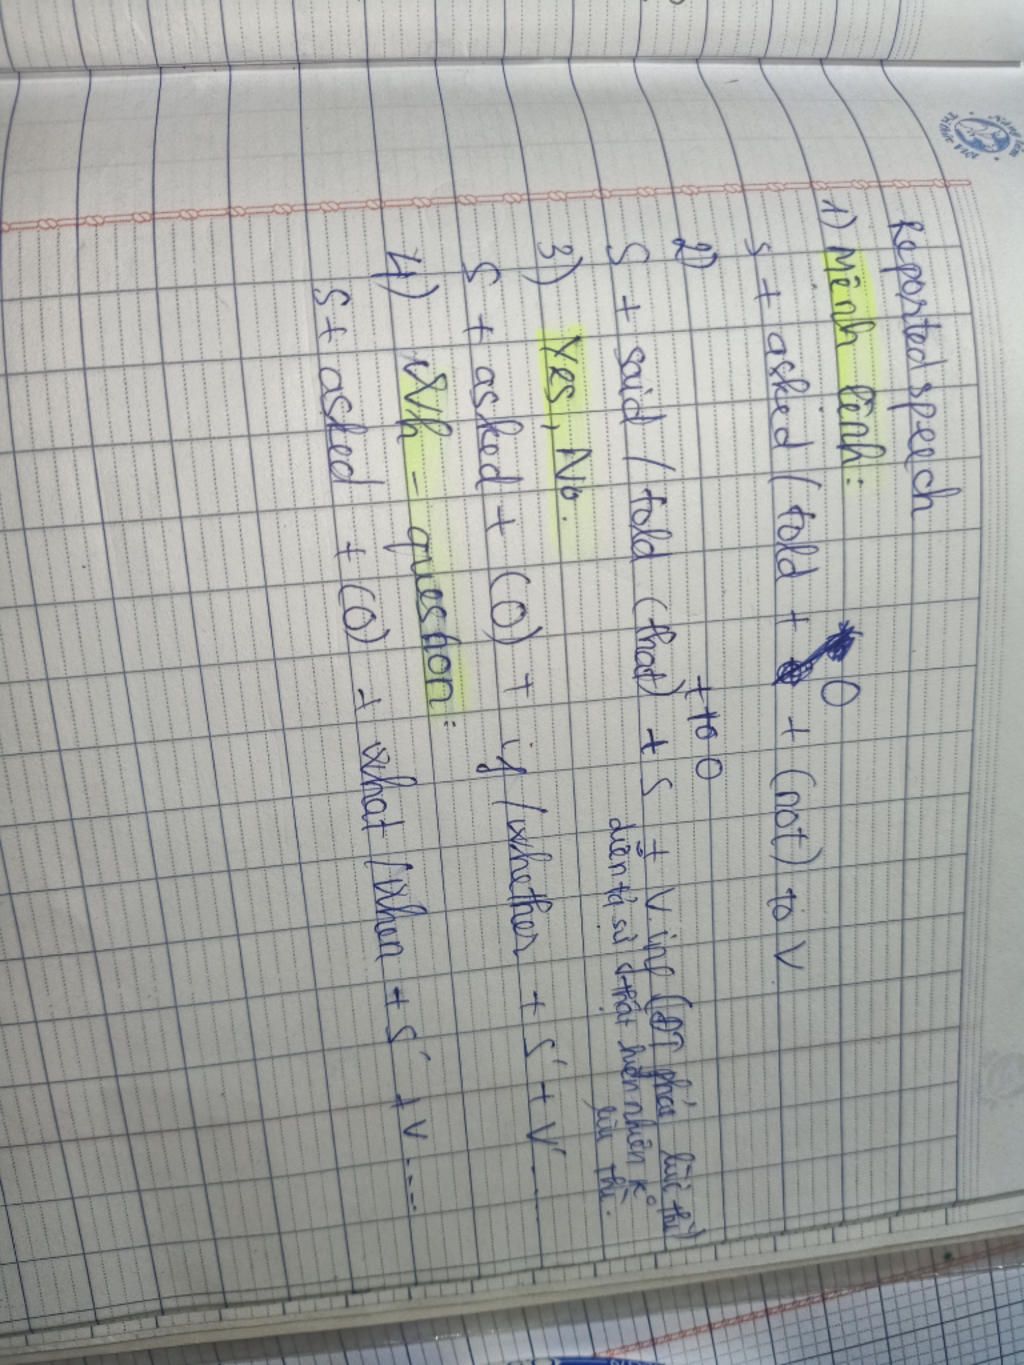 Reported speech
1) Mệnh lệnh:
S + asked / told + O + (not) to V
2)
+ to O
S + said / told (that) + S + V inf (ĐT phải lùi thì)
diễn tả sự thật hiển nhiên k° lùi thì.
3) Yes, No.
S + asked + (O) + if / whether + S' + V' ...
4) Wh - question:
S + asked + (O) + what / when + S' + V ....